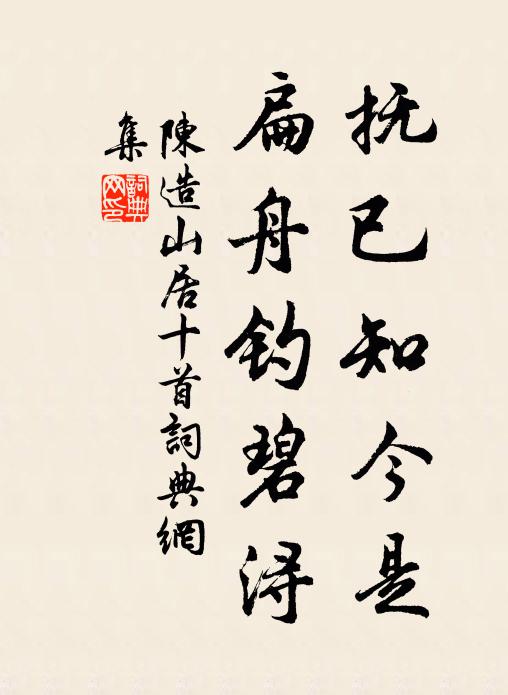 抚已知今是
扁舟钓碧浔
陳造山居十首詞典網
集
詞典
网印